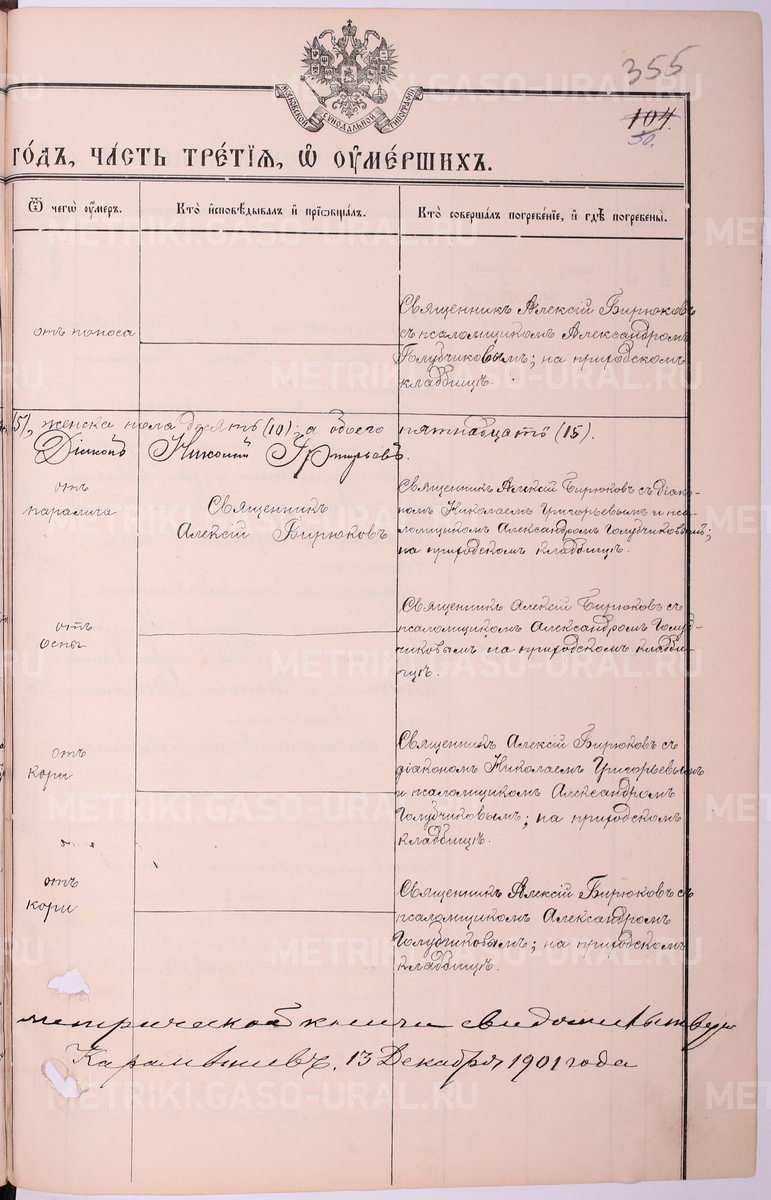 355
104
50.
МОСКОВСКОЙ СѴНОДАЛЬНОЙ ТИПОГРАФІИ
ГО́ДЪ, ЧА́СТЬ ТРЕ́ТІѦ, Ѡ᷍ ОУ҆МЕ́РШИХЪ.
Ѿ чегѡ̀ оу҆́меръ.
Кто̀ и҆сповѣ́дывалъ и҆ прїѻбща́лъ.
Кто̀ соверша́лъ погребе́нїе, и҆ гдѣ̀ погребены̀.
отъ поноса
Священникъ Алексій Бирюковъ
съ псаломщикомъ Александромъ
Голубчиковымъ; на приходскомъ
кладбищѣ.
(5), женска пола десять (10); а обоего пятнадцать (15).
Діаконъ Николай Григорьевъ.
отъ
паралича
Священникъ
Алексій Бирюковъ
Священникъ Алексій Бирюковъ съ діако-
номъ Николаемъ Григорьевымъ и пса-
ломщикомъ Александромъ Голубчиковымъ;
на приходскомъ кладбищѣ.
отъ
оспы
Священникъ Алексій Бирюковъ съ
псаломщикомъ Александромъ Голуб-
чиковымъ на приходскомъ кладби-
щѣ.
отъ
кори
Священникъ Алексій Бирюковъ съ
діакономъ Николаемъ Григорьевымъ
и псаломщикомъ Александромъ
Голубчиковымъ; на приходскомъ
кладбищѣ.
отъ
кори
Священникъ Алексій Бирюковъ съ
псаломщикомъ Александромъ
Голубчиковымъ; на приходскомъ
кладбищѣ.
метрической книги
13 Декабря 1901 года
METRIKI.GASO-URAL.RU